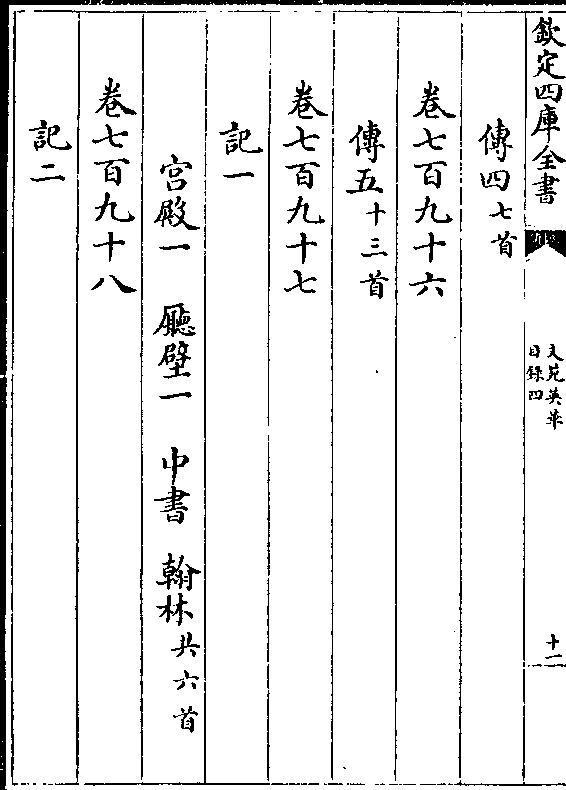 欽定四庫全書
文苑英華
目錄四
十一
傳四七首
卷七百九十六
傳五十三首
卷七百九十七
記一
宫殿一 廳壁一 中書 翰林共六首
卷七百九十八
記二